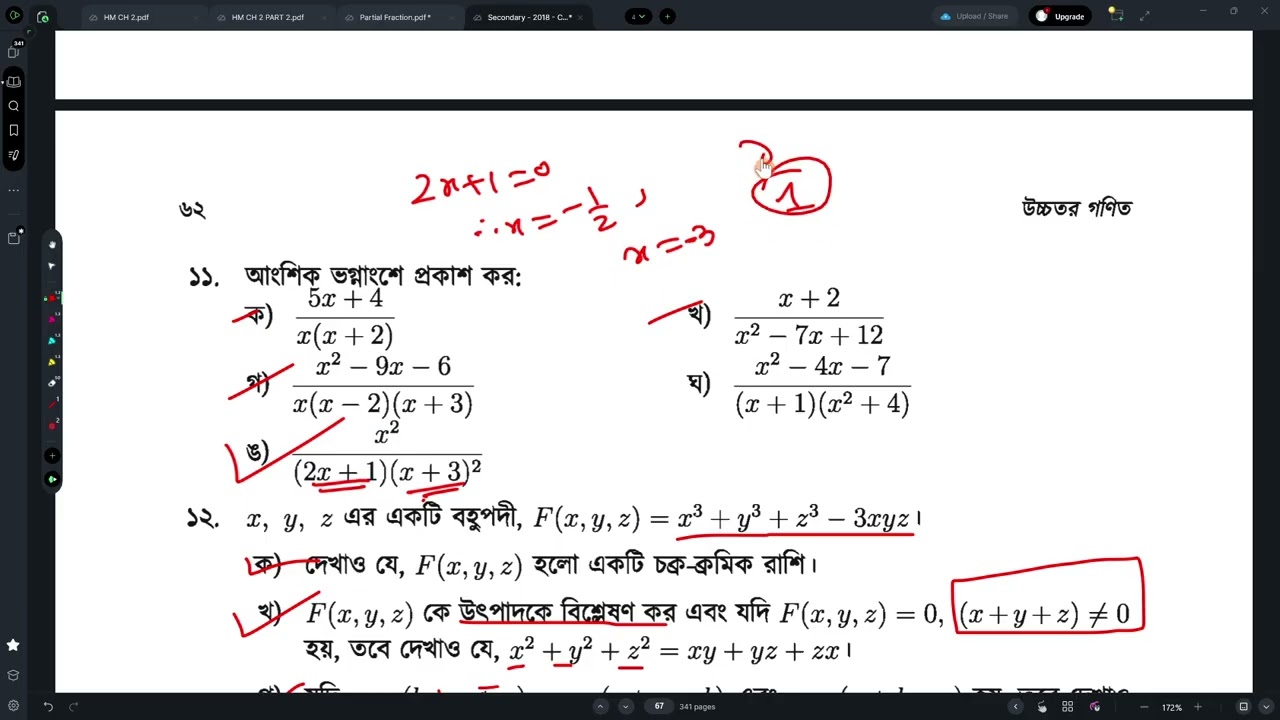 HM CH 2.pdf
HM CH 2 PART 2.pdf
Partial Fraction.pdf*
Secondary - 2018 - C...*
4
Upload / Share
Upgrade
341
2x+1=0
∴x=-1/2 ,
x=-3
1
৬২
উচ্চতর গণিত
১১. আংশিক ভগ্নাংশে প্রকাশ কর:
ক) (5x + 4)/(x(x + 2))
খ) (x + 2)/(x² − 7x + 12)
গ) (x² − 9x − 6)/(x(x − 2)(x + 3))
ঘ) (x² − 4x − 7)/((x + 1)(x² + 4))
ঙ) x²/((2x + 1)(x + 3)²)
১২. x, y, z এর একটি বহুপদী, F(x, y, z) = x³ + y³ + z³ − 3xyz।
ক) দেখাও যে, F(x, y, z) হলো একটি চক্র-ক্রমিক রাশি।
খ) F(x, y, z) কে উৎপাদকে বিশ্লেষণ কর এবং যদি F(x, y, z) = 0, (x + y + z) ≠ 0
হয়, তবে দেখাও যে, x² + y² + z² = xy + yz + zx।
67
341 pages
172%